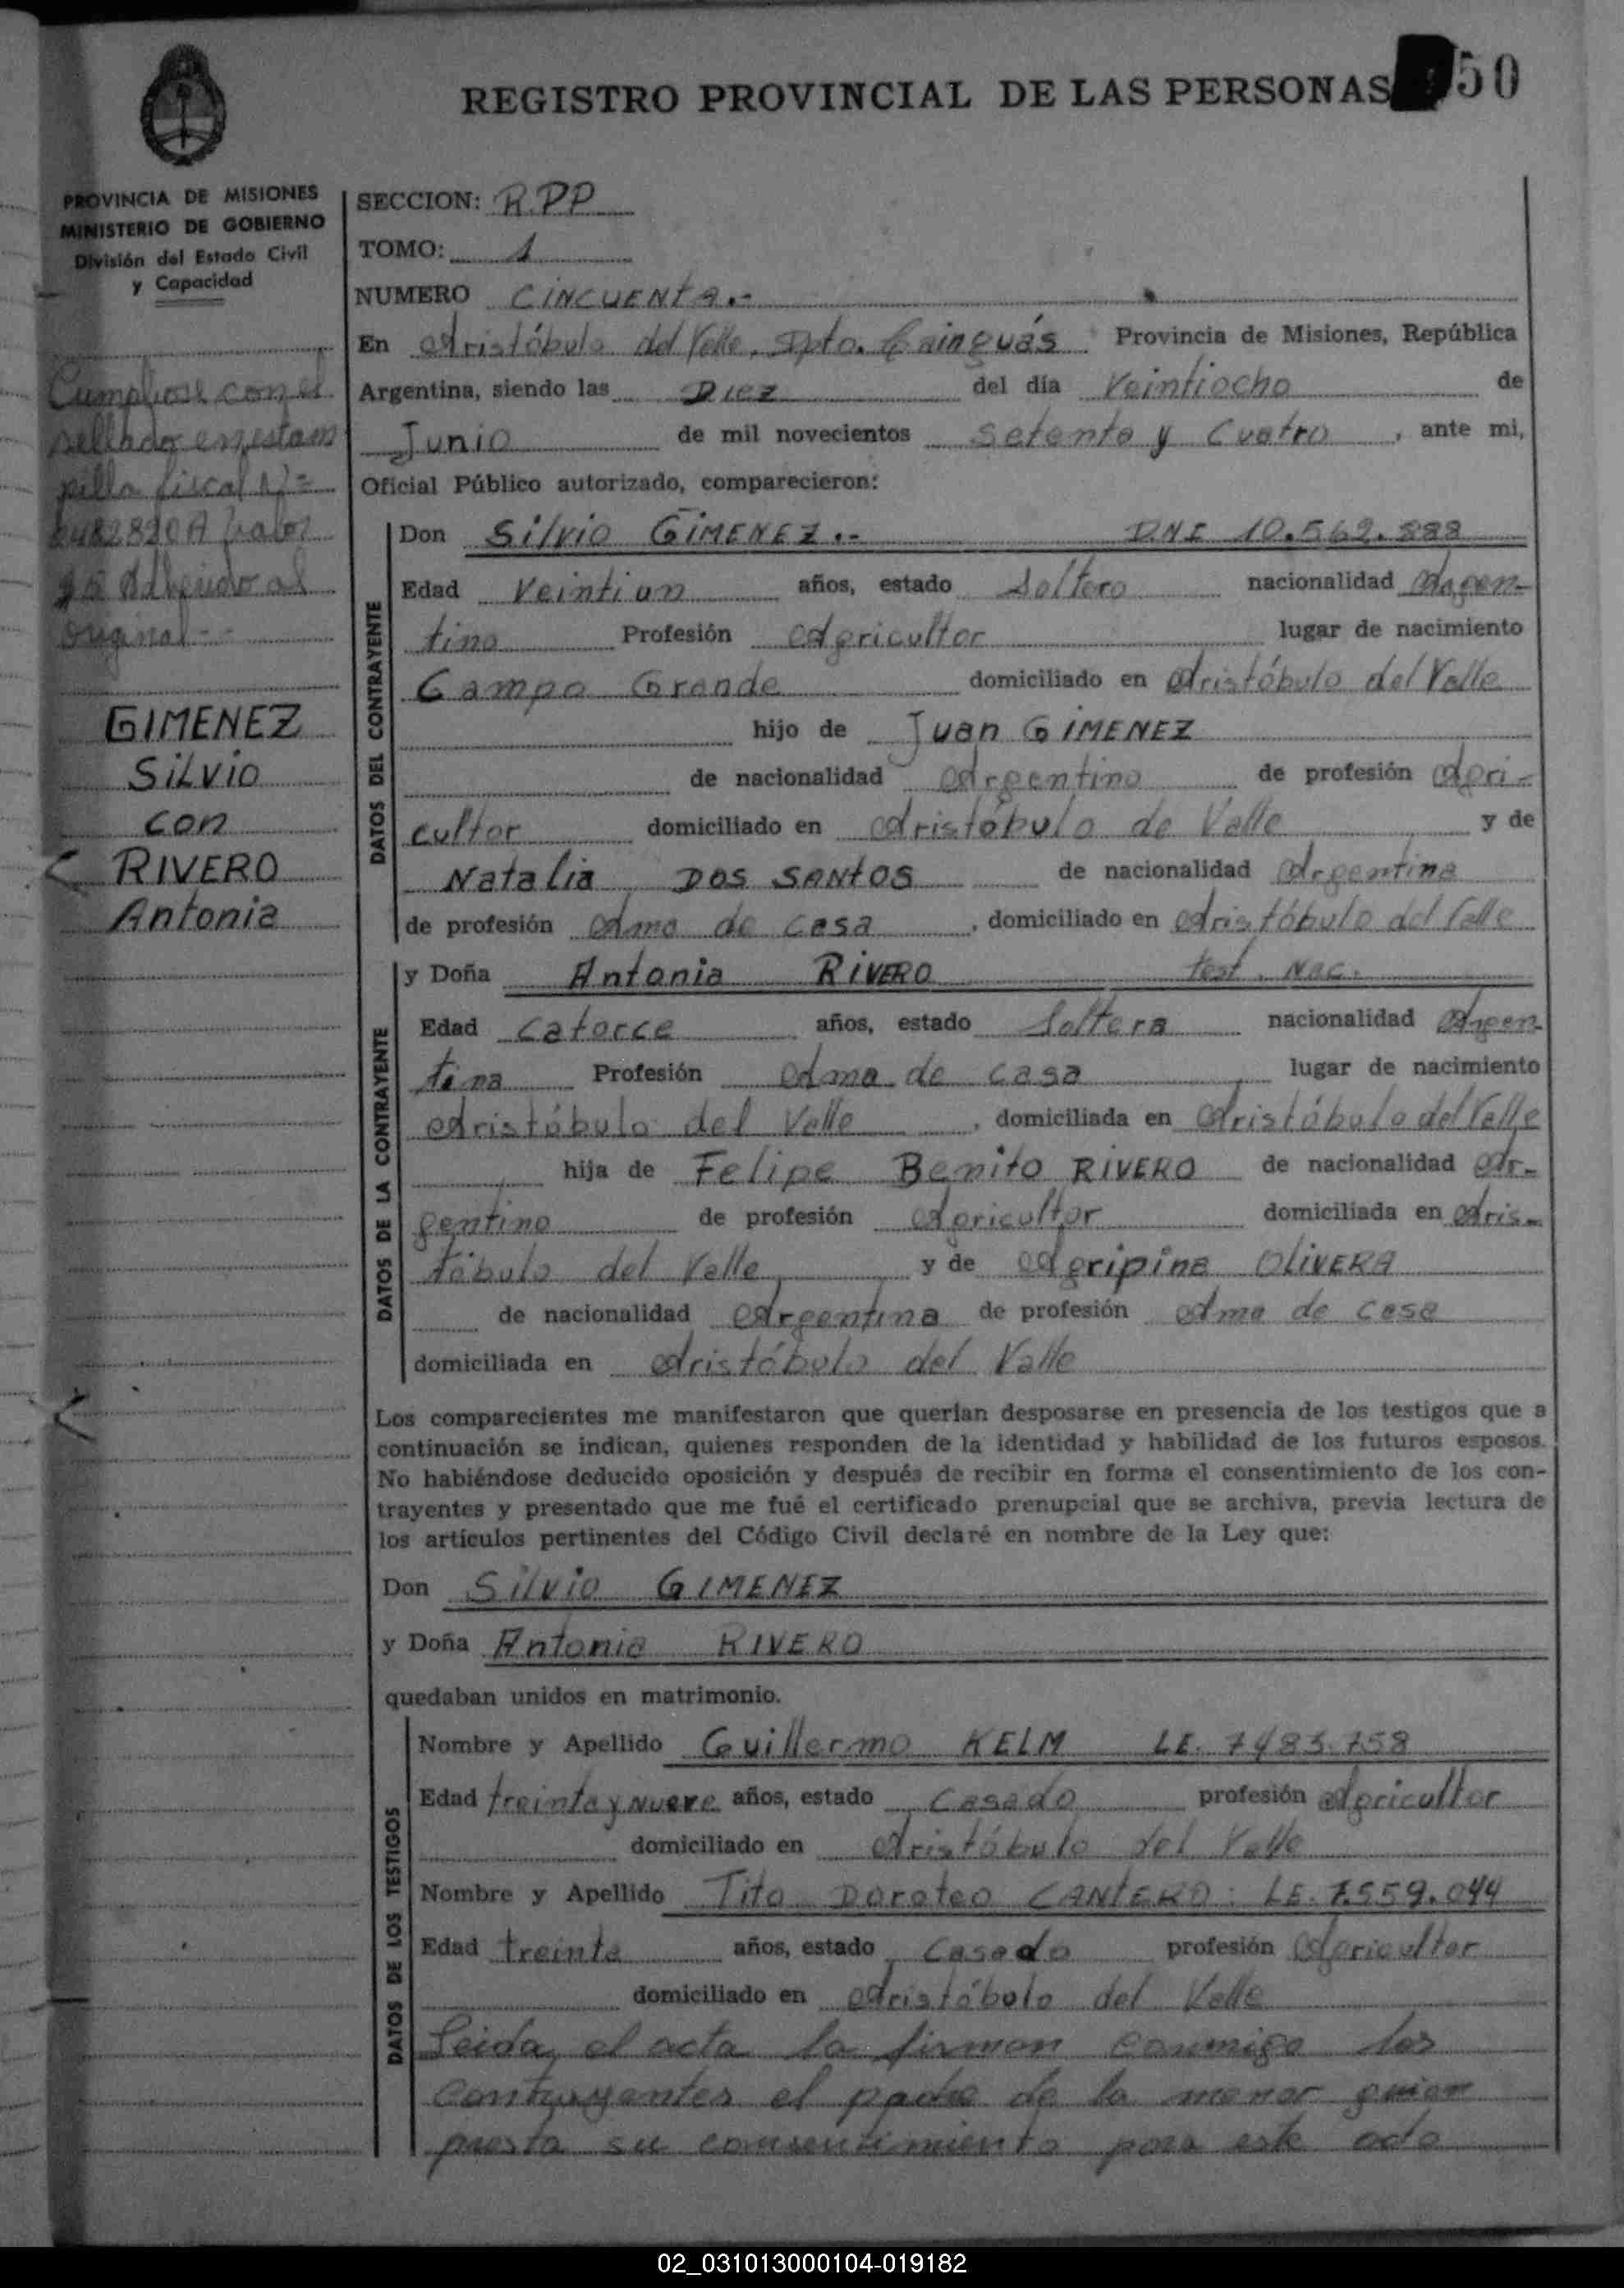 REGISTRO PROVINCIAL DE LAS PERSONAS 50
PROVINCIA DE MISIONES
MINISTERIO DE GOBIERNO
División del Estado Civil
y Capacidad
Cumpliose con el
sellado en estam
pilla fiscal Nº
valor
adherido al
original--
GIMENEZ
Silvio
con
RIVERO
Antonia
SECCION: R.PP
TOMO: 1
NUMERO CINCUENTA.-
En Aristóbulo del Valle, Dpto. Cainguás Provincia de Misiones, República
Argentina, siendo las Diez del día Veintiocho de
Junio de mil novecientos setenta y Cuatro, ante mi,
Oficial Público autorizado, comparecieron:
DATOS DEL CONTRAYENTE
Don Silvio GIMENEZ.- DNI 10.562.888
Edad Veintiun años, estado Soltero nacionalidad Argen-
tino Profesión Agricultor lugar de nacimiento
Campo Grande domiciliado en Aristóbulo del Valle
hijo de Juan GIMENEZ
de nacionalidad Argentino de profesión Agri-
cultor domiciliado en Aristóbulo de Valle y de
Natalia DOS SANTOS de nacionalidad Argentina
de profesión Ama de casa, domiciliado en Aristóbulo del Valle
DATOS DE LA CONTRAYENTE
y Doña Antonia RIVERO Test. Nac.
Edad catorce años, estado Soltera nacionalidad Argen
tina Profesión Ama de casa lugar de nacimiento
Aristóbulo del Valle, domiciliada en Aristóbulo del Valle
hija de Felipe Benito RIVERO de nacionalidad Ar-
gentino de profesión Agricultor domiciliada en Aris-
tóbulo del Valle y de Agripina OLIVERA
de nacionalidad Argentina de profesión Ama de casa
domiciliada en Aristóbulo del Valle
Los comparecientes me manifestaron que querían desposarse en presencia de los testigos que a
continuación se indican, quienes responden de la identidad y habilidad de los futuros esposos.
No habiéndose deducido oposición y después de recibir en forma el consentimiento de los con-
trayentes y presentado que me fué el certificado prenupcial que se archiva, previa lectura de
los artículos pertinentes del Código Civil declaré en nombre de la Ley que:
Don Silvio GIMENEZ
y Doña Antonia RIVERO
quedaban unidos en matrimonio.
DATOS DE LOS TESTIGOS
Nombre y Apellido Guillermo KELM LE. 7483.758
Edad treinta y nueve años, estado Casado profesión Agricultor
domiciliado en Aristóbulo del Valle
Nombre y Apellido Tito Doroteo CANTERO: LE. 7.559.044
Edad treinta años, estado Casado profesión Agricultor
domiciliado en Aristóbulo del Valle
Leida el acta la firman conmigo los
contrayentes el padre de la menor quien
presta su consentimiento para este acto
02_031013000104-019182